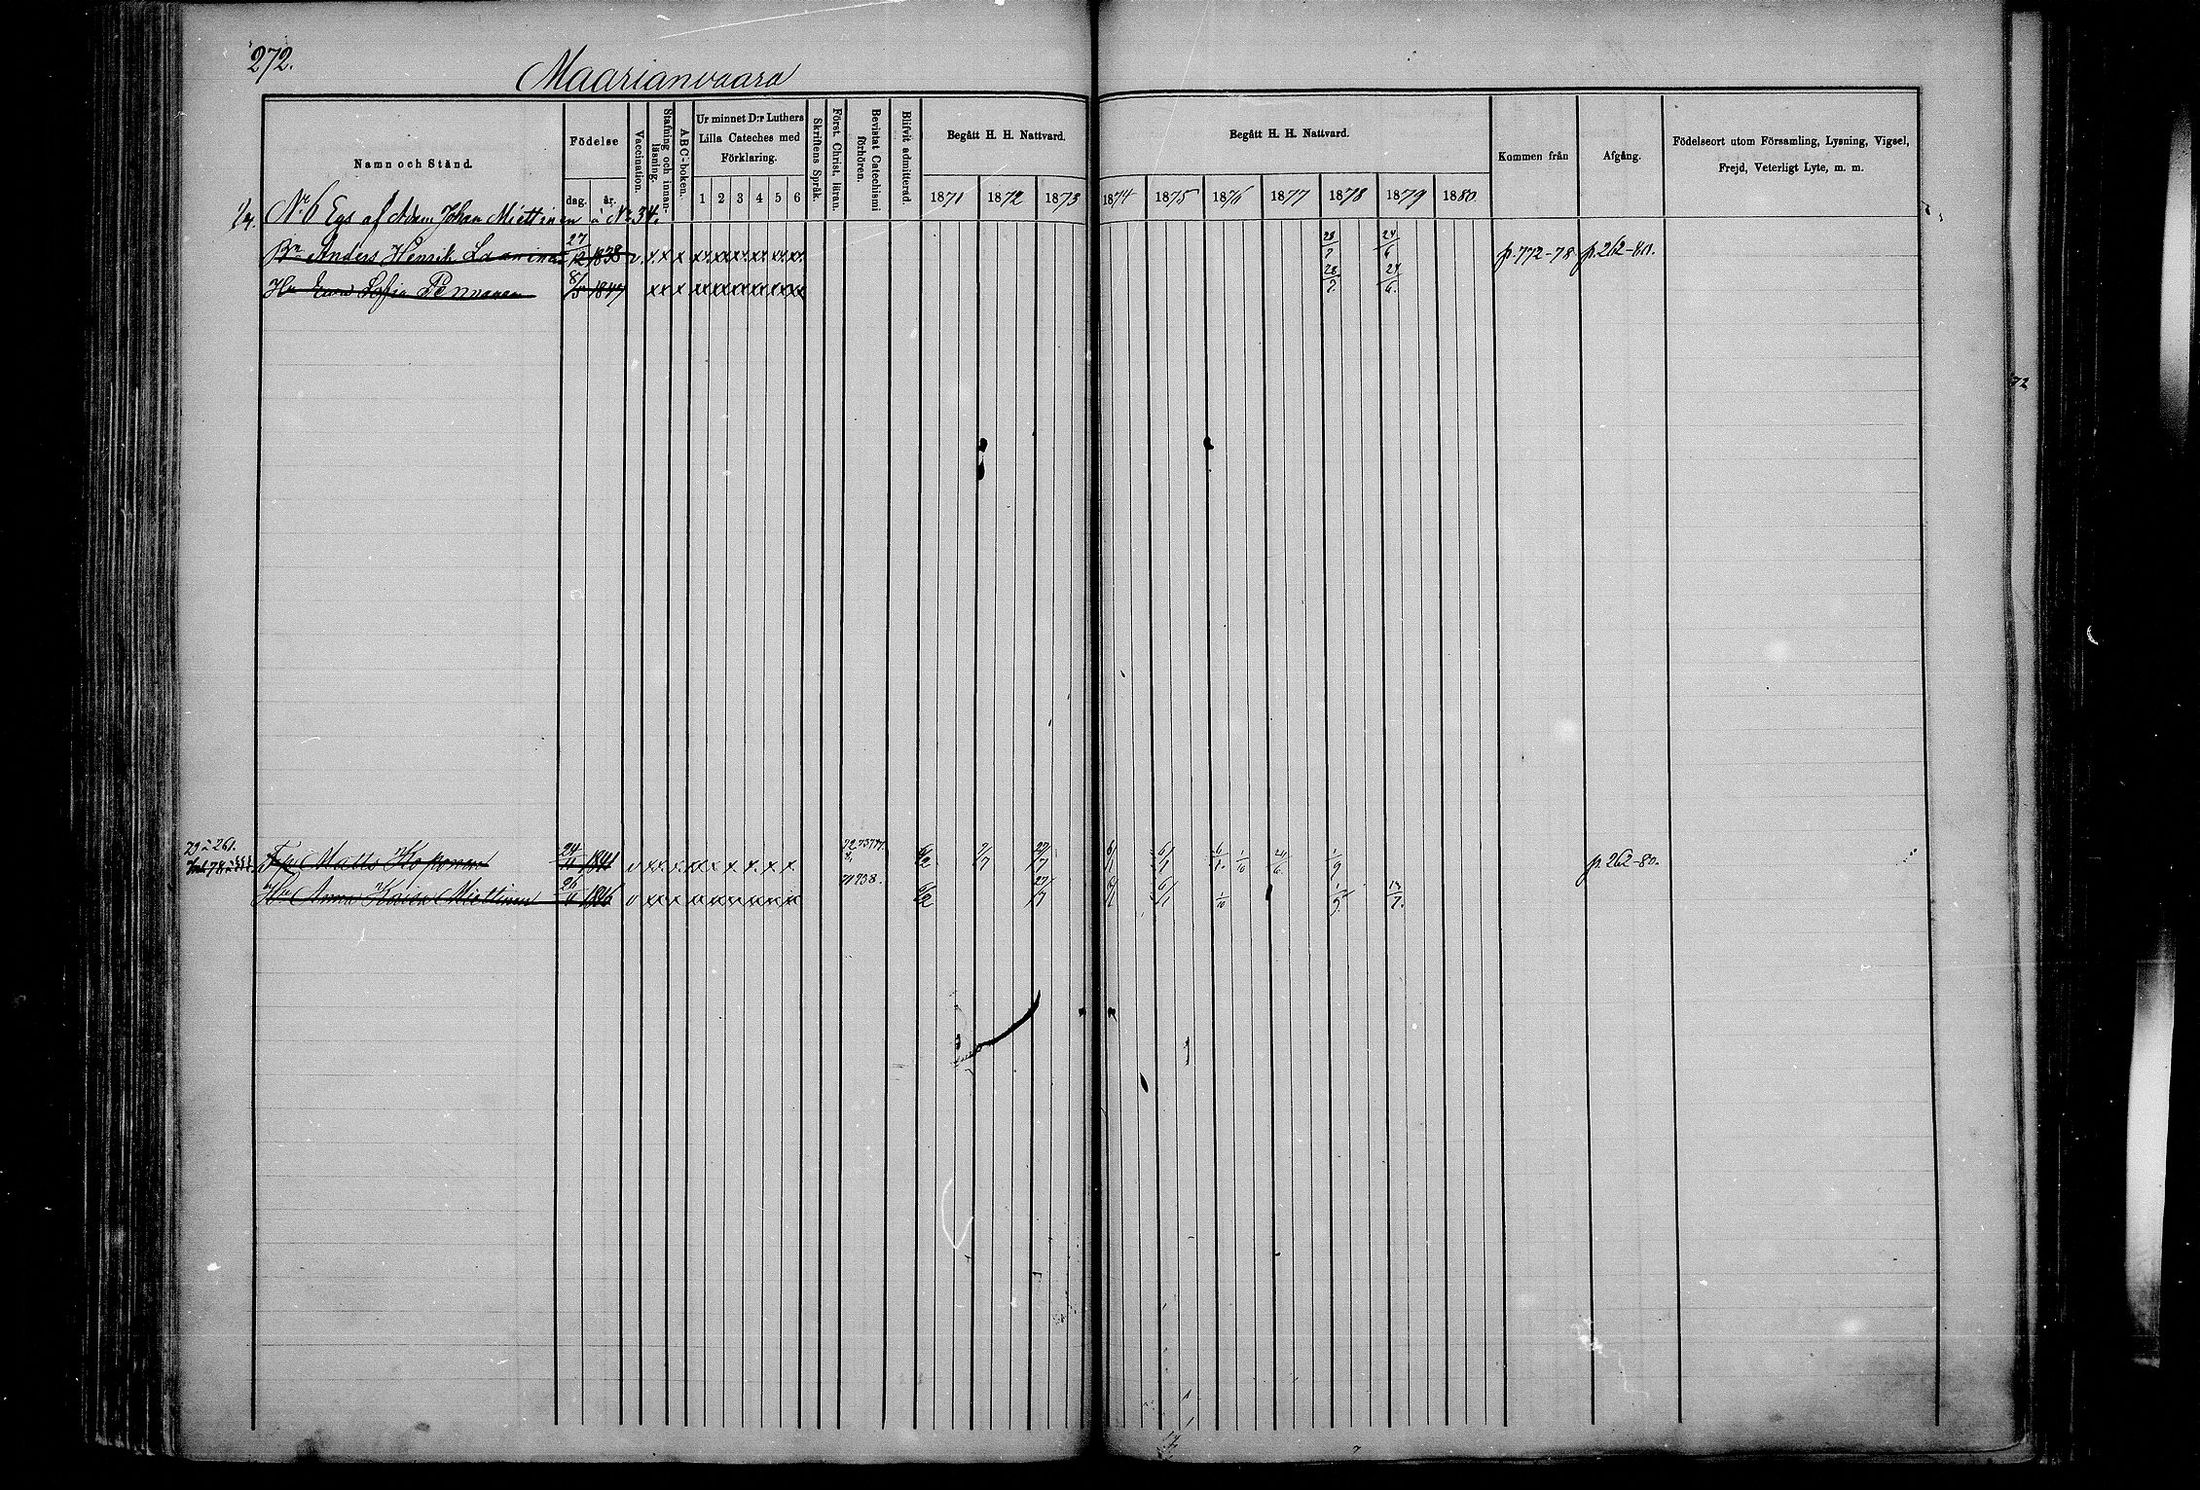 272.
Maarianvaara
Namn och Stånd.
Födelse
dag. år.
Vaccination.
Stafning och innanläsning.
ABC-boken.
Ur minnet D:r Luthers Lilla Cateches med Förklaring.
1 2 3 4 5 6
Skriftens Språk.
Först. Christ. läran.
Bevistat Catechismi förhören.
Blifvit admitterad.
Begått H. H. Nattvard.
1871 1872 1873
Begått H. H. Nattvard.
1874 1875 1876 1877 1878 1879 1880
Kommen från
Afgång.
Födelseort utom Församling, Lysning, Vigsel, Frejd, Veterligt Lyte, m. m.
No 6 Egs af Adam Johan Miettinen å No 34.
Anders Henrik 27/12 1838 v. x x x 28/7 24/6 p. 772-78 p. 262-80.
Hu Sofia 1847 x x x 28/7 24/6.
29 261.
Matts 24/11 1841 v x x x x x x x x 6/2 7/7 27/7 6/1 6/1 1/10 21/6 1/9 p. 262-80.
Hu Anna Kaisa Miettinen 26/11 6/2 27/7 6/1 6/1 1/10 1/9. 13/7.
72